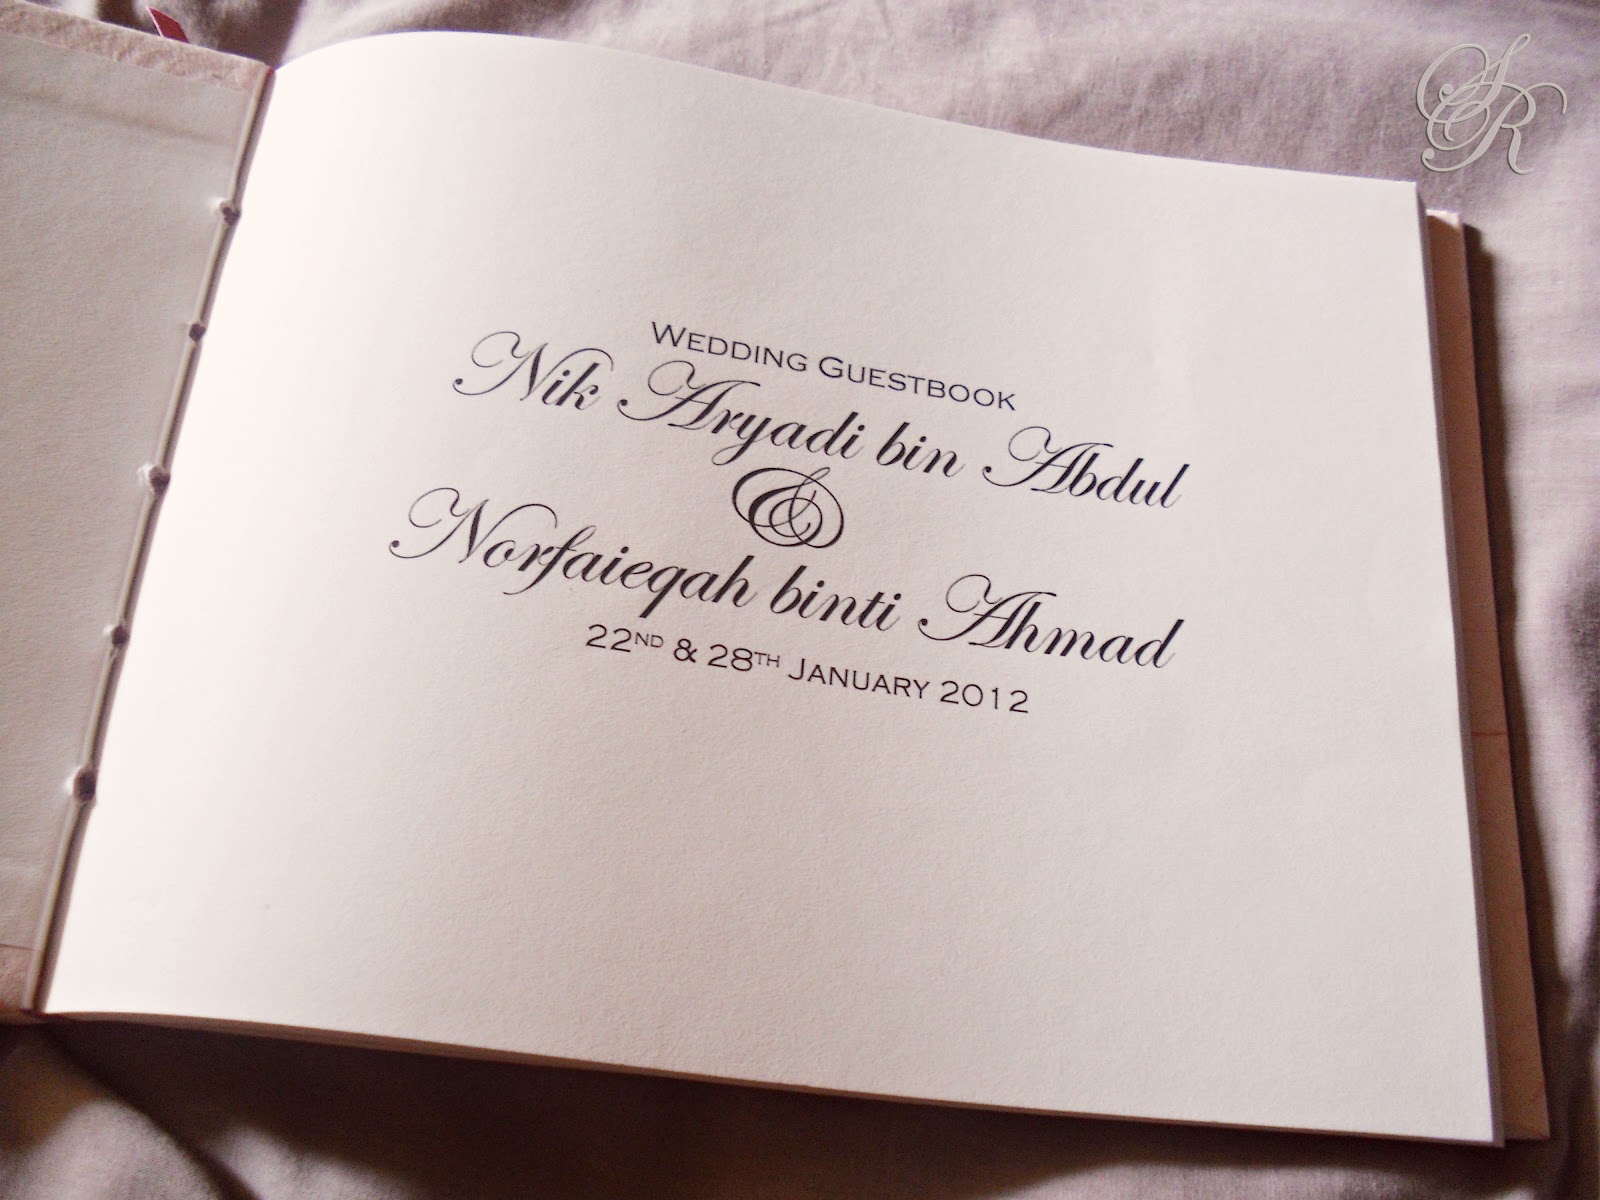 SR
Wedding Guestbook
Nik Aryadi bin Abdul
&
Norfaieqah binti Ahmad
22nd & 28th January 2012